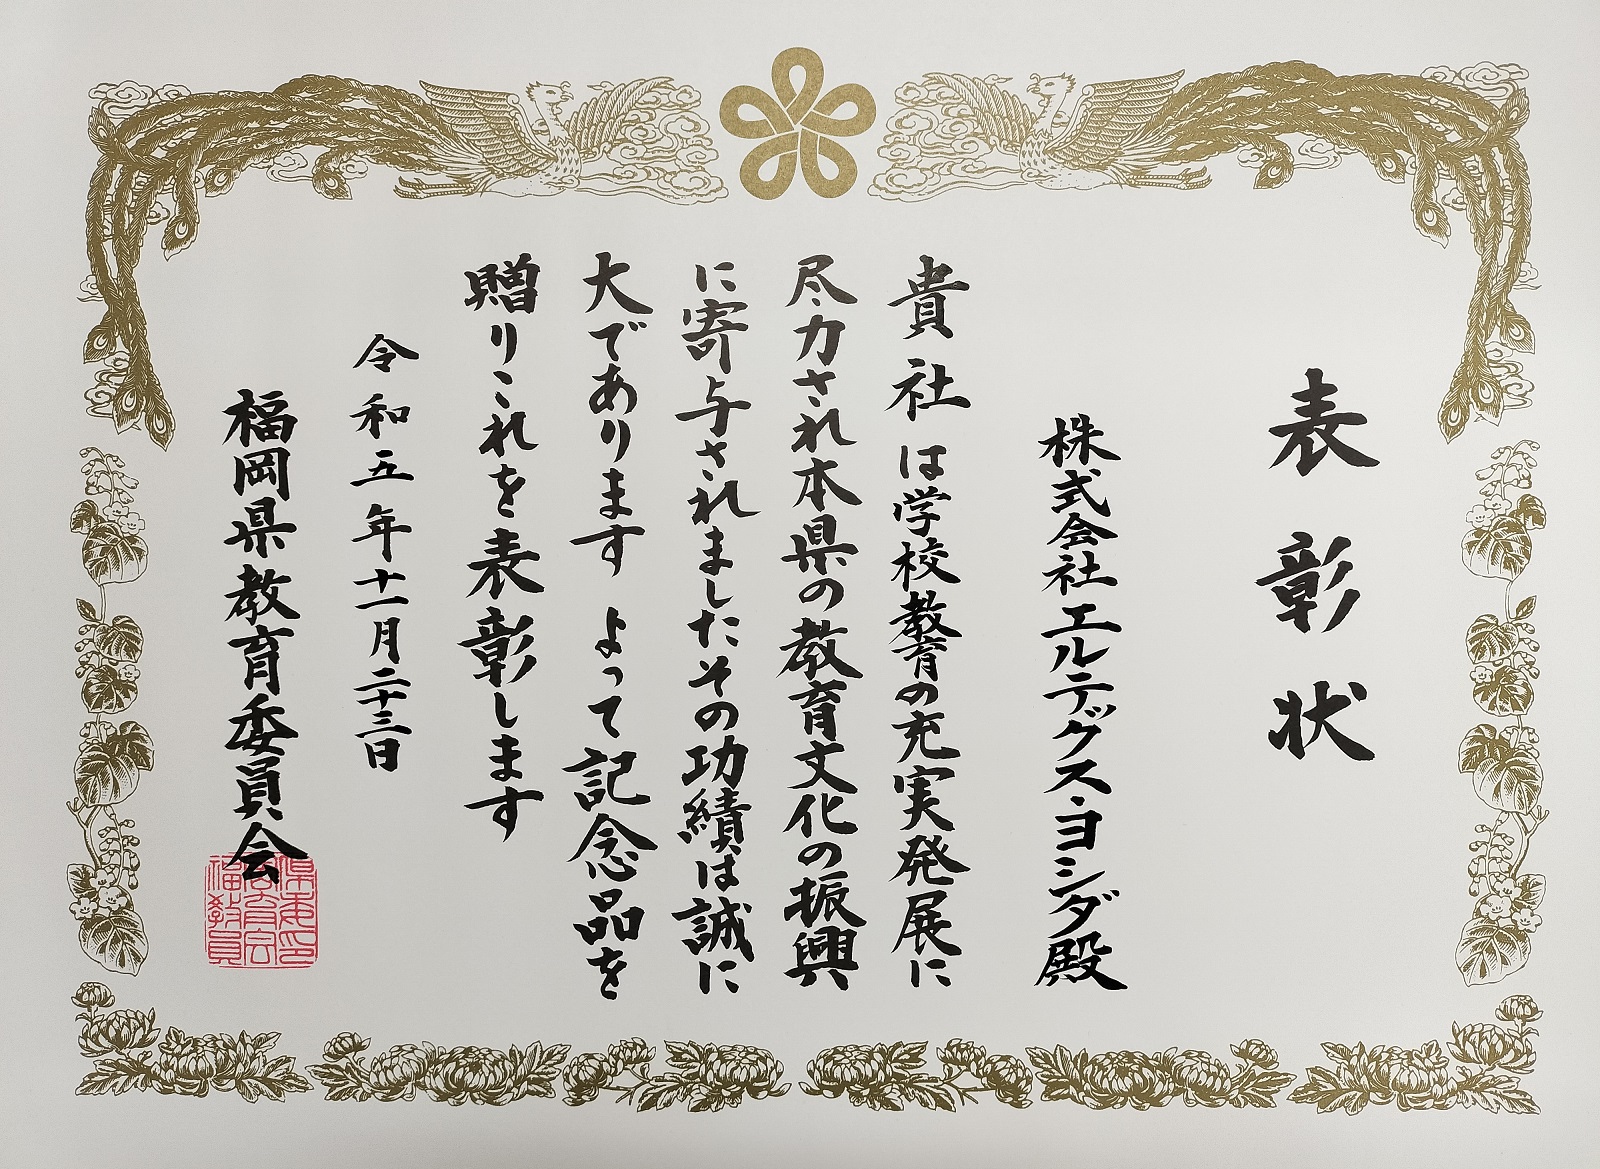 表彰状
株式会社エルテックス・ヨシダ殿
貴社は学校教育の充実発展に
尽力され本県の教育文化の振興
に寄与されましたその功績は誠に
大であります よって記念品を
贈りこれを表彰します
令和五年十一月二十三日
福岡県教育委員会